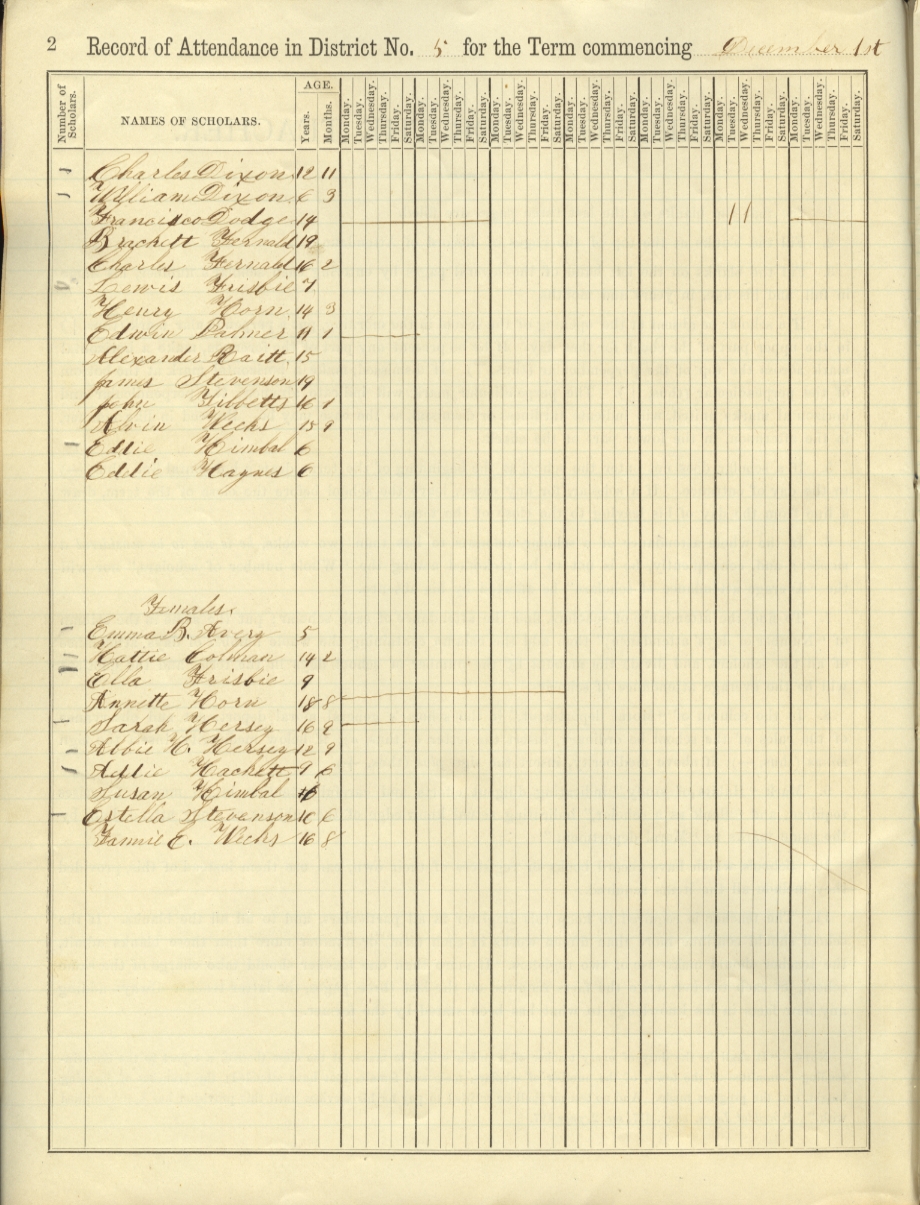 2 Record of Attendance in District No. 5 for the Term commencing December 1st
Number of Scholars.
NAMES OF SCHOLARS.
AGE.
Years. Months. Monday. Tuesday. Wednesday. Thursday. Friday. Saturday. Monday. Tuesday. Wednesday. Thursday. Friday. Saturday. Monday. Tuesday. Wednesday. Thursday. Friday. Saturday. Monday. Tuesday. Wednesday. Thursday. Friday. Saturday. Monday. Tuesday. Wednesday. Thursday. Friday. Saturday. Monday. Tuesday. Wednesday. Thursday. Friday. Saturday. Monday. Tuesday. Wednesday. Thursday. Friday. Saturday.
Charles Dixon 12 11
William Dixon 6 3
Francisco Dodge 14
Brackett Fernald 19
Charles Fernald 16 2
Lewis Frisbie 7
Henry Horn 14 3
Edwin Palmer 11 1
Alexander Raitt 15
James Stevenson 19
John Tibbetts 16 1
Alvin Weeks 15 9
Eddie Kimbal 6
Eddie Haynes 6
Females.
Emma B. Avery 5
Hattie Colman 14 2
Ella Frisbie 9
Annette Horn 18 8
Sarah Hersey 16 9
Abbie H. Hersey 12 9
Addie Hackett 9 6
Susan Kimbal
Estella Stevenson 10 6
Fannie E. Weeks 16 8